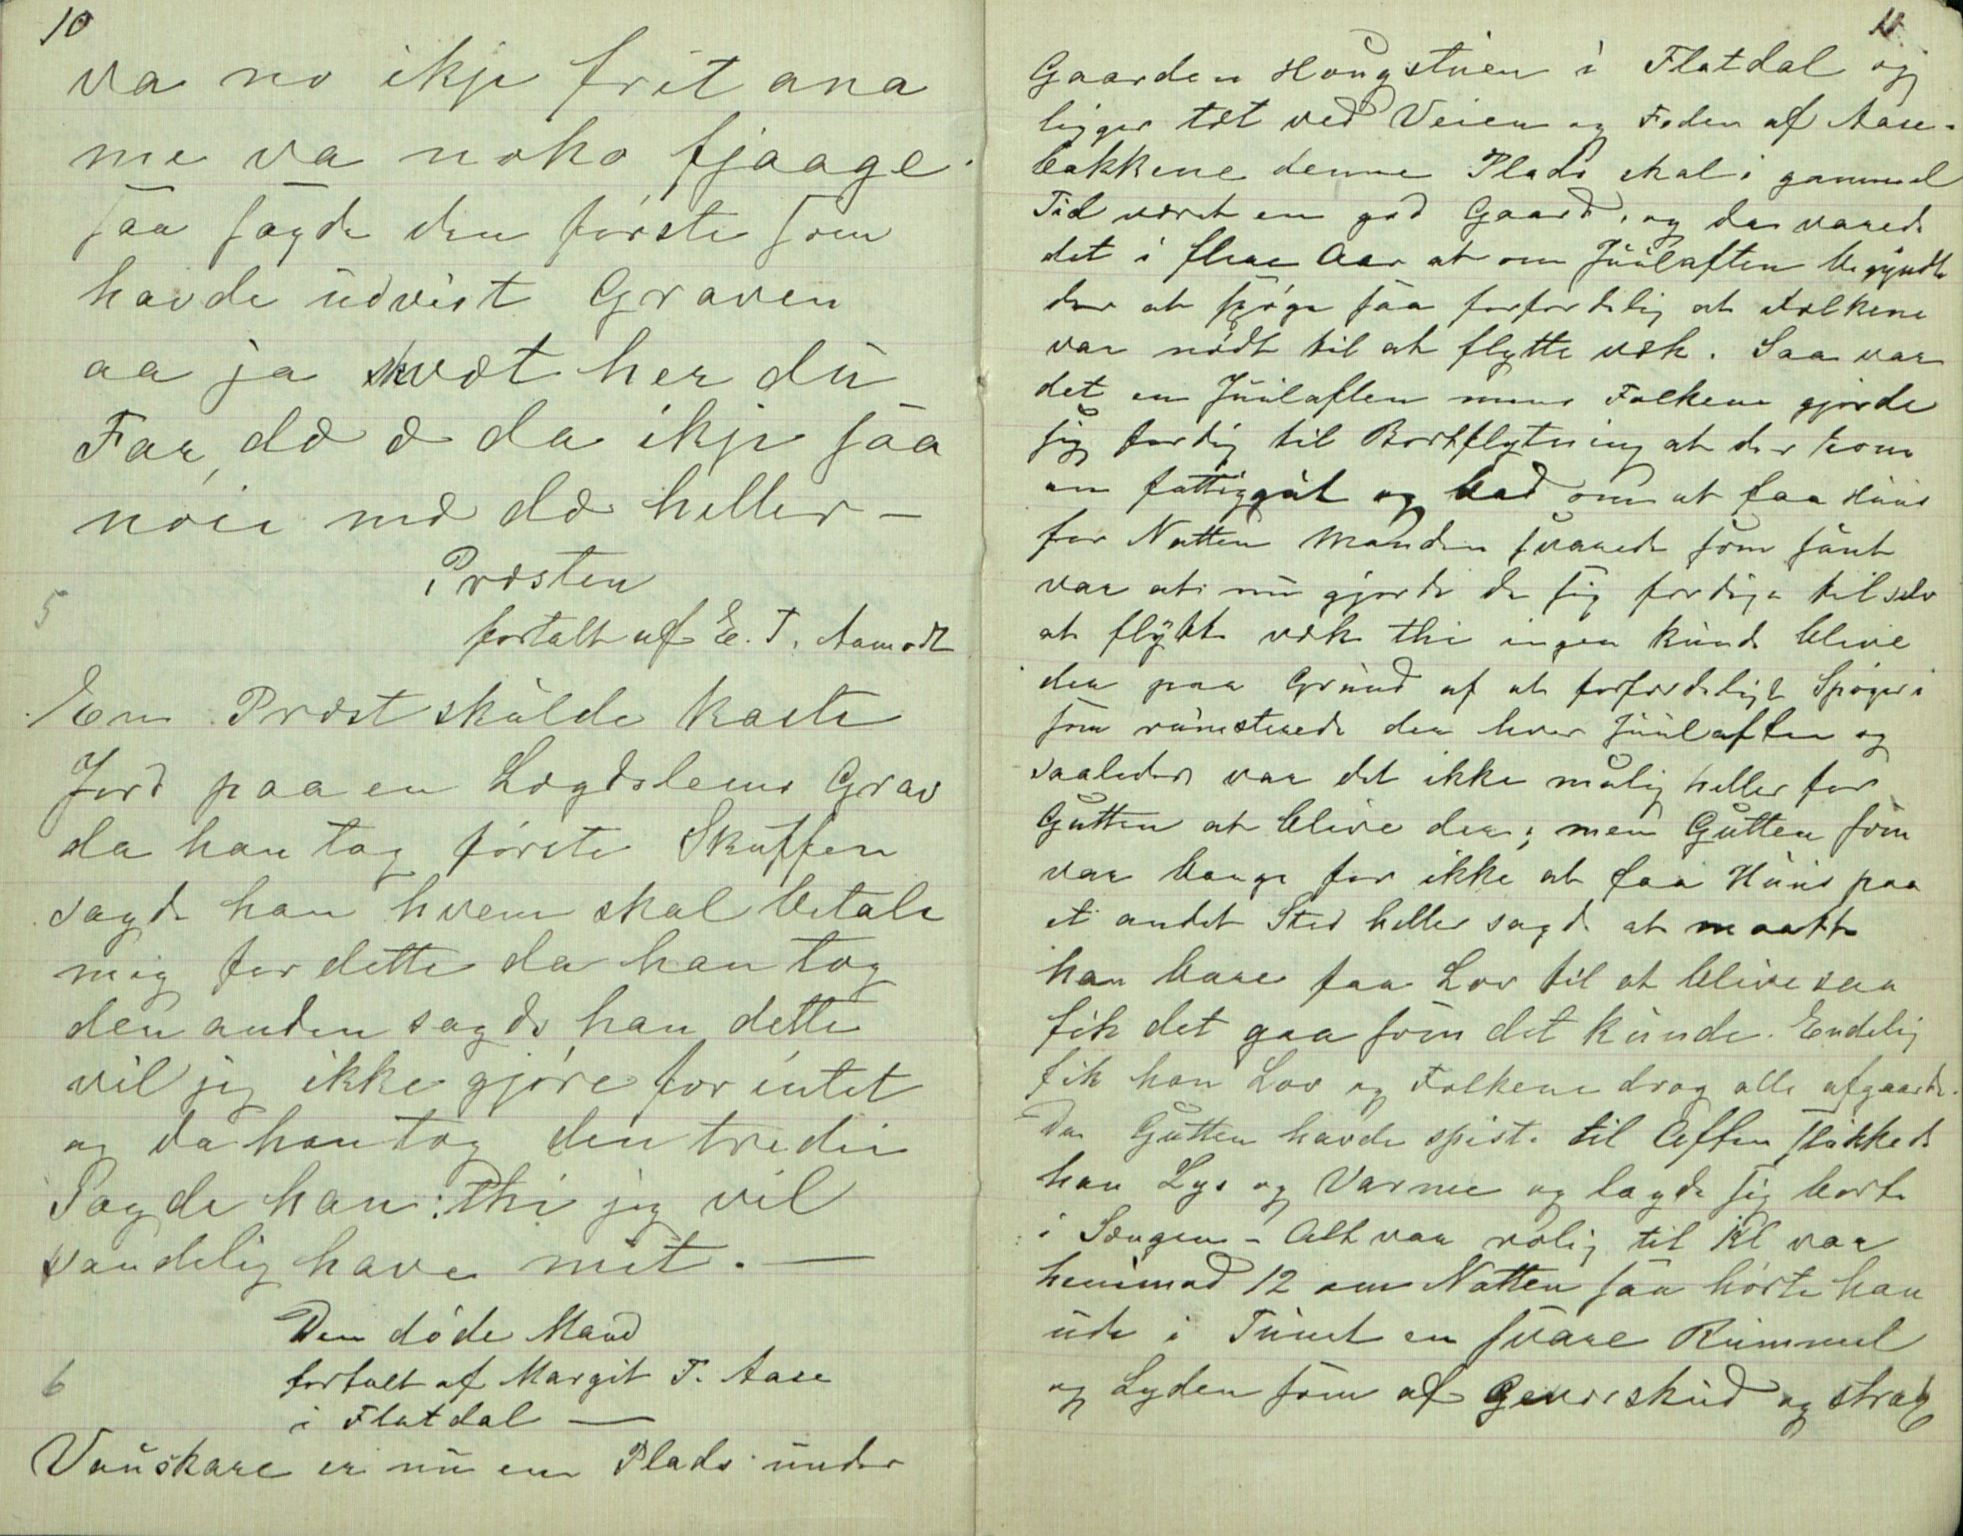 10
va no ikje frit ana
me va noko fjaage.
saa sagde den förste som
havde üdvist Graven
aa ja skvæt her dü
Far, dæ æ da ikje saa
nöie mæ dæ heller —
Præsten
5
fortalt af E. T. Aamodt
En Præst skülde kaste
Jord paa en Lægdslems Grav
da han tog förste Skuffen
sagde han hvem skal betale
mig for dette da han tog
den anden sagde han dette
vil jeg ikke gjöre for intet
og da han tog den tredie
Sagde han: thi jeg vil
vandelig have mit. —
Den döde Mand
6
fortalt af Margit F. Aase
i Flatdal —
Vauskare er nü en Plads ünder
11.
Gaarden Hougstüen i Flatdal og
ligger tæt ved Veien og Foden af Aase-
bakkene denne Plads skal i gammel
Tid været en god Gaard, og da varede
det i flere Aar at om Jüulaften begyndte
der at spöge saa forfærdelig at Folkene
var nödt til at flytte væk. Saa var
det en Jüulaften mens Folkene gjorde
sig færdig til Bortflytning at der kom
en fattiggüt og bad om at faa Hüus
for Natten Manden svarede som sant
var at nü gjorde de sig færdige til selv
at flytte væk thi ingen künde blive
der paa Gründ af at forfærdeligt Spögeri
som rümsterede der hver Jüulaften og
saaledes var det ikke mülig heller for
Gutten at blive der; men Gutten som
var bange for ikke at faa Hüus paa
et andet Sted heller sagde at maatte
han bare faa Lov til at blive saa
fik det gaa som det künde. Endelig
fik han Lov og Folkene drog alle afgaarde.
Da Gutten havde spist til Aften slükkede
han Lys og Varme og lagde sig bort
i Sængen – Alt var rolig til Kl var
henimod 12 om Natten saa hörte han
üde i Tünet en svare Rümmel
og Lyden som af Geværskud og strax